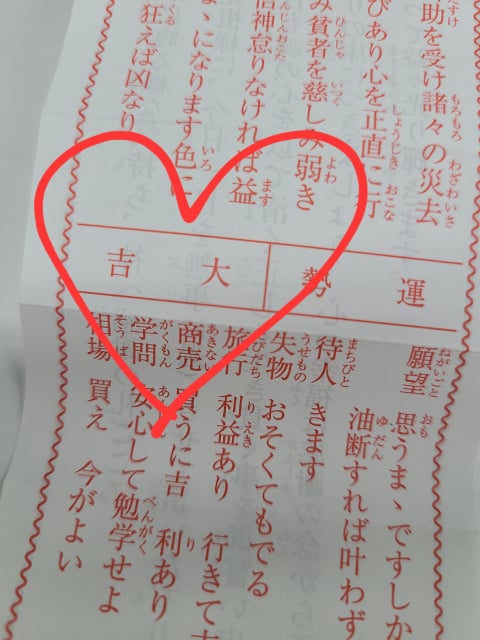 助を受け諸々の災去
びあり心を正直に行
み貧者を慈しみ弱き
信神怠りなければ益
まゝになります色に
狂えは凶なり
運勢
大吉
願望 思うまゝですしか
油断すれば叶わず
待人 きます
失物 おそくてもでる
旅行 利益あり 行きて
商売 買うに吉 利あり
学問 安心して勉学せよ
相場 買え 今がよい